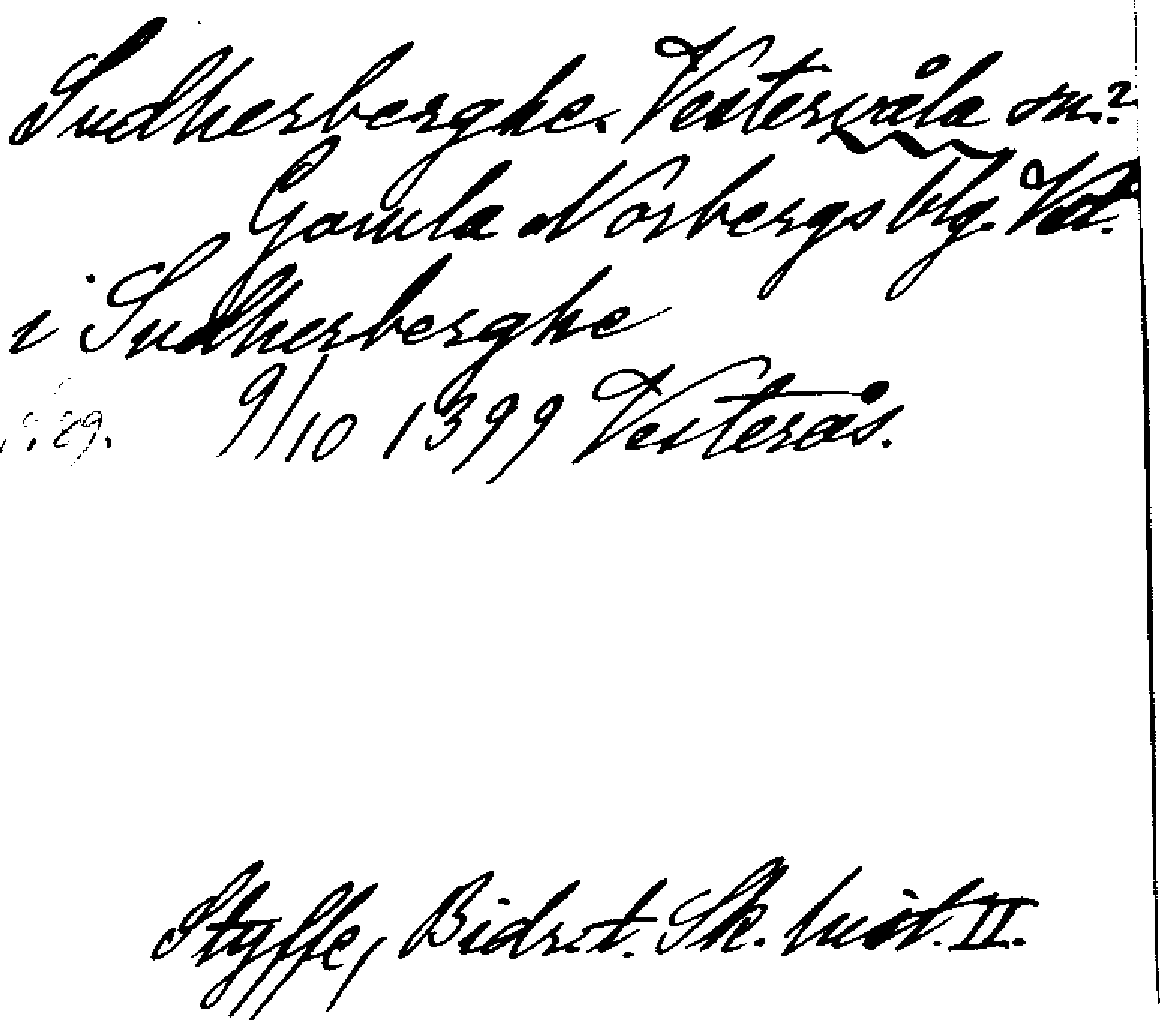 Sudherberghe. Vestervåla sn?
Gamla Norbergs blg. Vstl.
i Sudherberghe
s. 29. 9/10 1399 Vesterås.
Styffe, Bidr. t. Sk. hist. II.